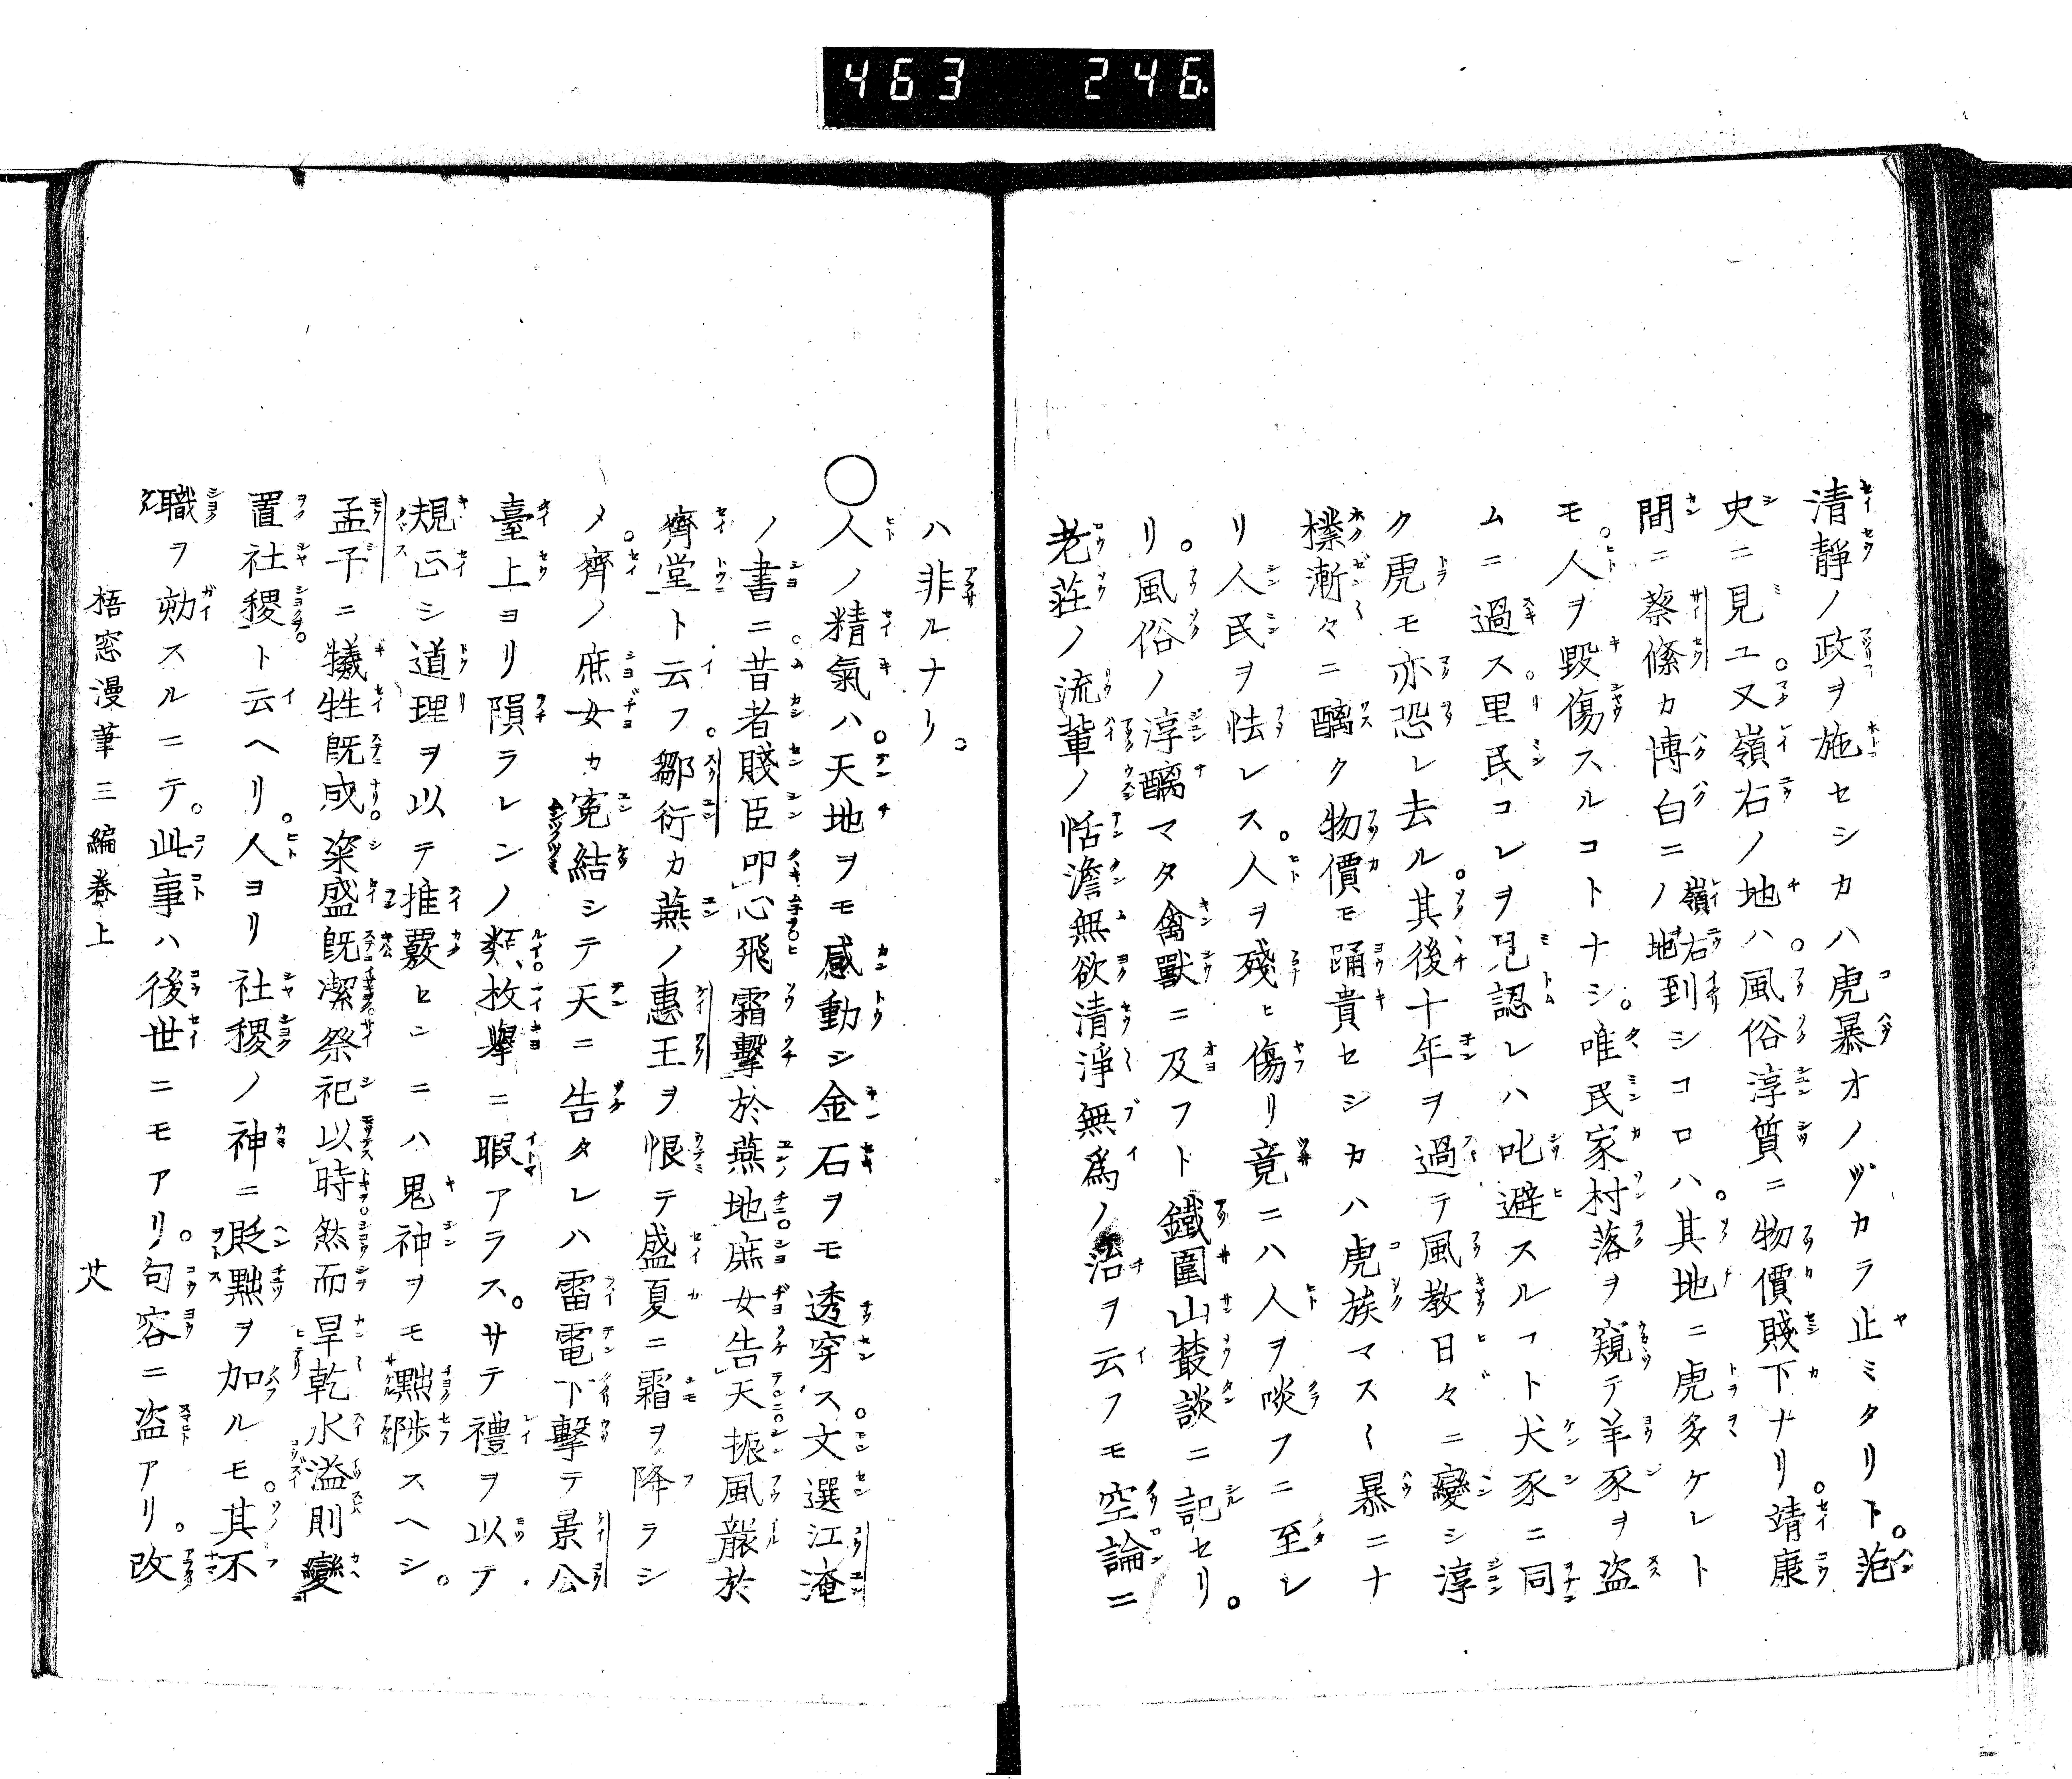 463 246
清靜ノ政ヲ施セシカハ虎暴オノヅカラ止ミタリト。范
史ニ見ユ。又嶺右ノ地ハ。風俗淳質ニ物價賤下ナリ。靖康
間ニ蔡絛カ博白ニノ嶺右地到シコロハ。其地ニ虎多ケレト
モ。人ヲ毀傷スルコトナシ。唯民家村落ヲ窺テ羊豕ヲ盗
ムニ過ス。里民コレヲ見認レハ叱避スルコト犬豕ニ同
ク虎モ亦恐レ去ル。其後十年ヲ過テ風教日々ニ變シ淳
樸漸々ニ醨ク物價モ踊貴セシカハ虎族マス〱暴ニナ
リ人民ヲ怯レス。人ヲ殘ヒ傷リ竟ニハ人ヲ啖フニ至レ
リ。風俗ノ淳醨マタ禽獸ニ及フト鐵圍山叢談ニ記セリ。
老莊ノ流輩ノ恬澹無欲清淨無爲ノ治ヲ云フモ空論ニ
ハ非ルナリ。
○人ノ精氣ハ天地ヲモ感動シ金石ヲモ透穿ス文選江淹
ノ書ニ。昔者賤臣叩心飛霜擊於燕地庶女告天振風襲於
齊堂ト云フ。鄒衍カ燕ノ惠王ヲ恨テ盛夏ニ霜ヲ降ラシ
メ。齊ノ庶女カ寃結シテ天ニ告タレハ雷電下擊テ景公
臺上ヨリ隕ラレンノ類、枚擧ニ暇アラス。サテ禮ヲ以テ
規正シ道理ヲ以テ推覈センニハ鬼神ヲモ黜陟スヘシ。
孟子ニ犠牲既成粢盛既潔祭祀以時然而旱乾水溢則變
置社稷ト云ヘリ。人ヨリ社稷ノ神ニ貶黜ヲ加ルモ。其不
職ヲ劾スルニテ。此事ハ後世ニモアリ。句容ニ盗アリ。改
梧窓漫筆三編巻上 廿八